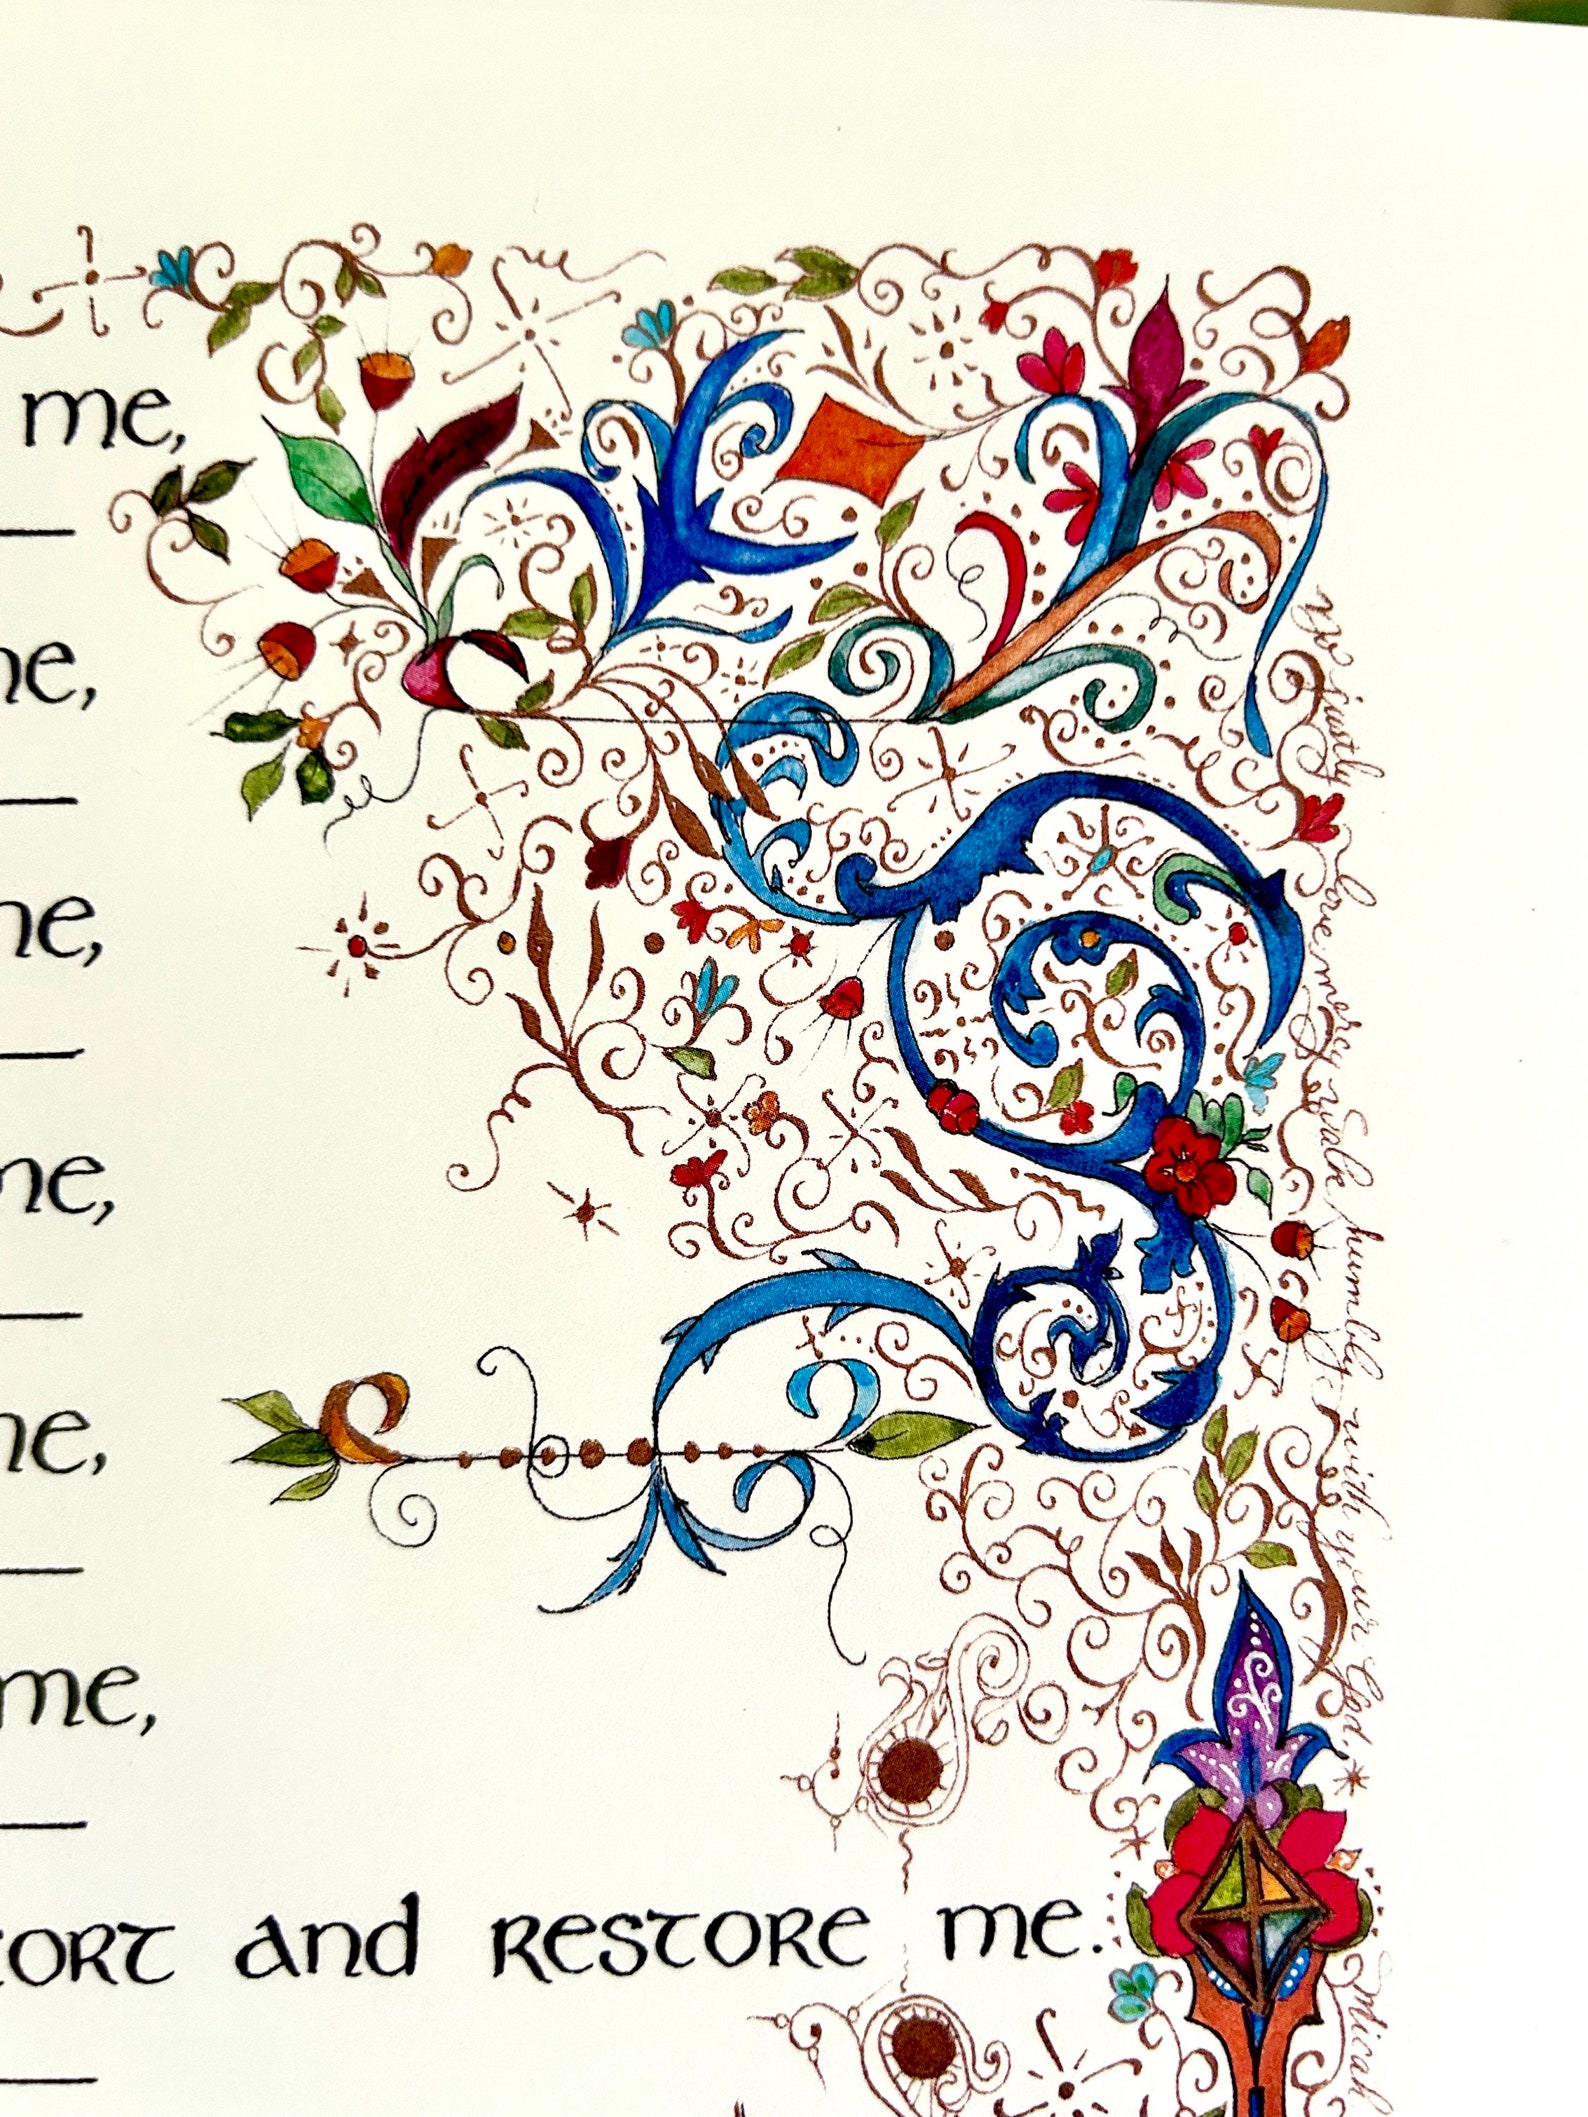 me,
me,
me,
me,
me,
me,
fort and restore me.
Do justly love mercy walk humbly with your God.
Micah